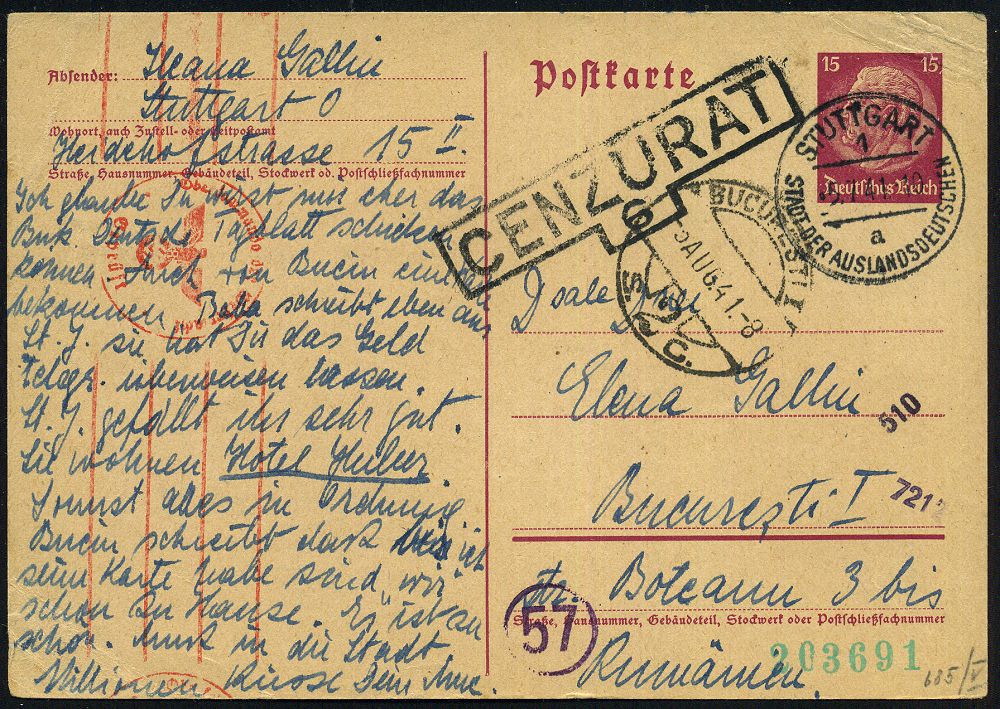 Absender: Ileana Gallin
Stuttgart O
Wohnort, auch Zustell- oder Leitpostamt
Heidehofstrasse 15 II.
Straße, Hausnummer, Gebäudeteil, Stockwerk od. Postschließfachnummer
Ich glaube Du wirst nur eher das
Buk. Tagblatt schicken
können. Auch von Bucin
bekommen. Baba schreibt eben aus
St. J. sie hat Du das Geld
Telegr. überweisen lassen.
St. J. gefällt ihr sehr gut.
Sie wohnen Hotel Huber.
Sonst alles in Ordnung
Bucin schreibt dass ich
seine Karte habe sind "wir"
schon zu Hause. Es ist so
schön. Muss in die Stadt
Millionen Küsse Dein
Postkarte
15 15
Deutsches Reich
STUTTGART
1
a
STADT DER AUSLANDSDEUTSCHEN
CENZURAT
6
BUCUREȘTI
AUG.41.-8
S. C.
Geprüft
Doale
Elena Gallin
510
București I
721
Str. Boteanu 3 bis
57
Straße, Hausnummer, Gebäudeteil, Stockwerk oder Postschließfachnummer
Rumänien.
203691
685/V